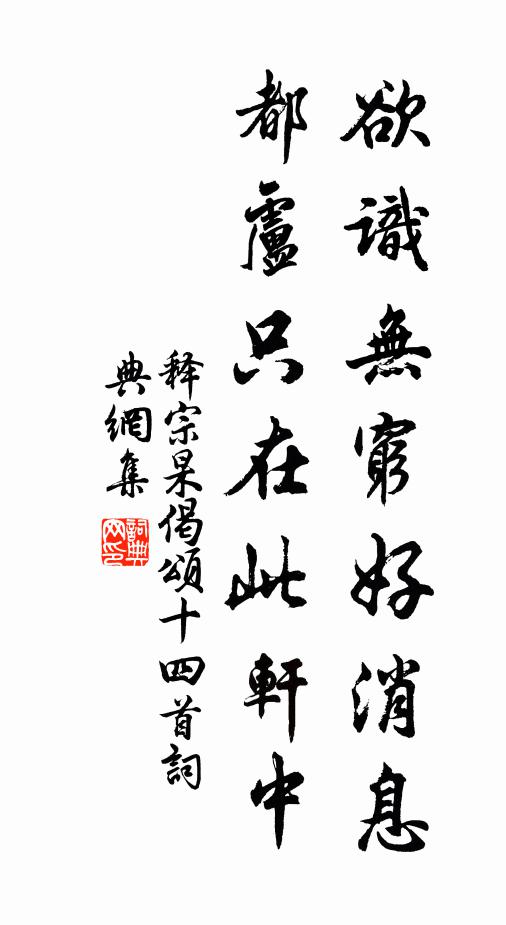 欲識無窮好消息
都盧只在此軒中
釋宗杲偈頌十四首詞
典網集
詞典網印